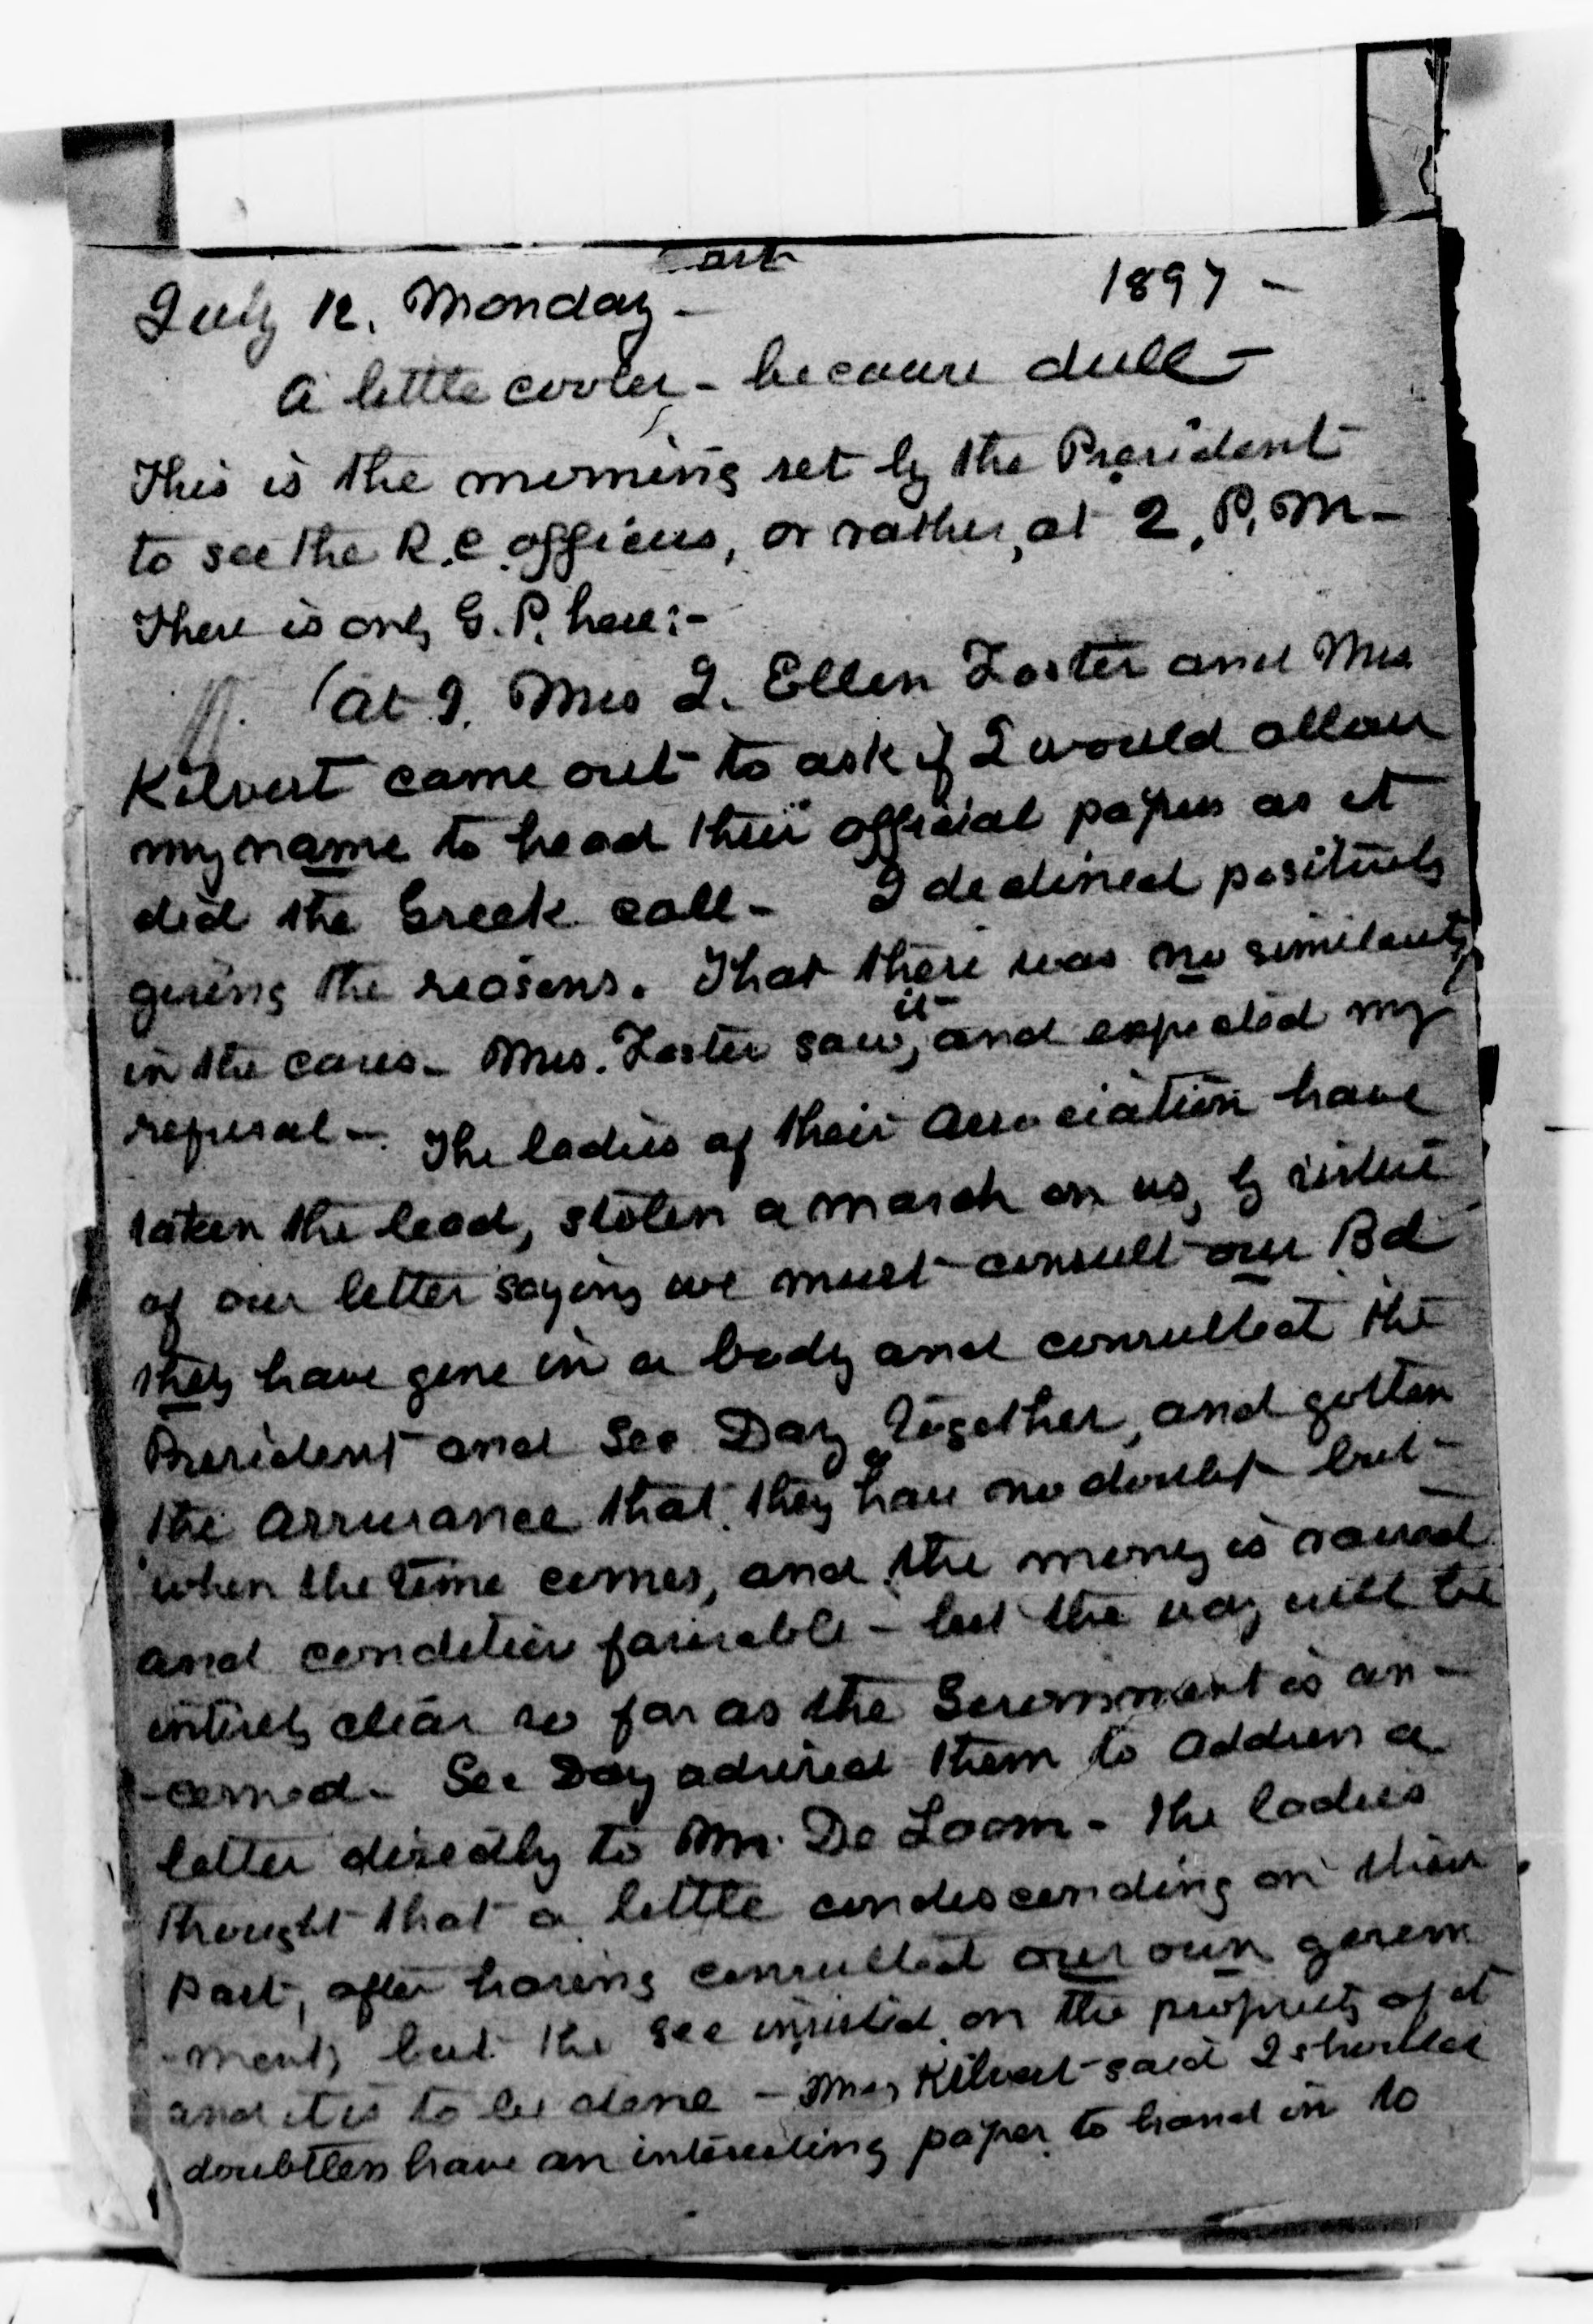 July 12. Monday - 1897 -
A little cooler - because dull -
This is the morning set by the President
to see the R.C. officers, or rather, at 2, P.M. -
There is only G.P. here:-
(at 9. Mrs J. Ellen Foster and Mrs
Kilvert came out to ask if I would allow
my name to head their official papers as it
did the Greek call - I declined positively
giving the reasons. That there was no similarity
in the cases - Mrs. Foster saw it, and expected my
refusal - The ladies of their Association have
taken the lead, stolen a march on us, by virtue
of our letter saying we must consult our Bd
they have gone in a body and consulted the
President and Sec Day together, and gotten
the assurance that they have no doubt but
when the time comes, and the money is raised
and condition favorable - but the way will be
entirely clear so far as the Government is con-
-cerned - Sec Day advised them to address a
letter directly to Mr. De Loom - the ladies
thought that a little condescending on their
part, after having consulted our own govern
-ment, but the Sec insisted on the propriety of it
and it is to be done - Mrs Kilvert said I should
doubtless have an interesting paper to hand in to